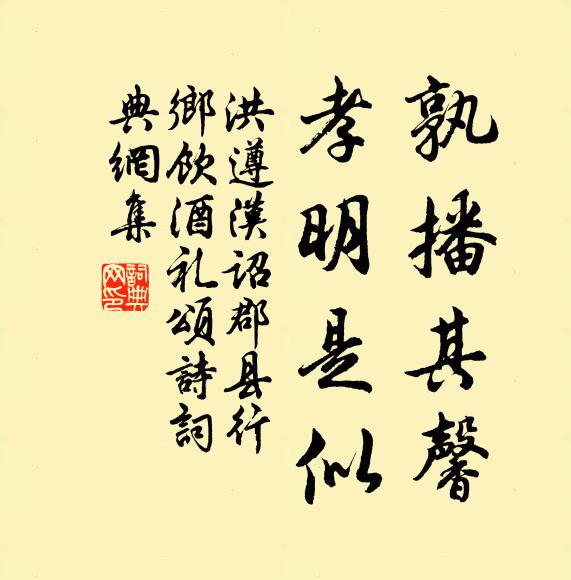 孰播其馨
孝明是似
洪遵漢詔郡县行
鄉飲酒礼頌詩詞
典網集
詞典网印